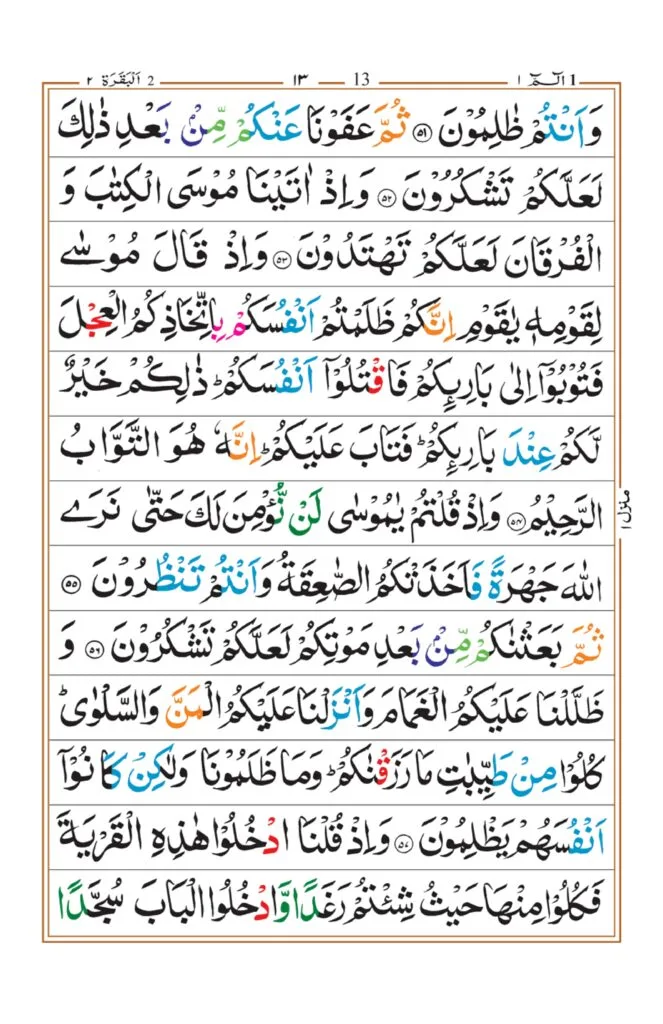 الٓمّٓ ۱ 1 13 ۱۳ 2 اَلْبَقَرَة ۲
وَاَنْتُمْ ظٰلِمُوْنَ ۝۵۱ ثُمَّ عَفَوْنَا عَنْكُمْ مِّنْۢ بَعْدِ ذٰلِكَ
لَعَلَّكُمْ تَشْكُرُوْنَ ۝۵۲ وَاِذْ اٰتَيْنَا مُوْسَى الْكِتٰبَ وَ
الْفُرْقَانَ لَعَلَّكُمْ تَهْتَدُوْنَ ۝۵۳ وَاِذْ قَالَ مُوْسٰى
لِقَوْمِهٖ يٰقَوْمِ اِنَّكُمْ ظَلَمْتُمْ اَنْفُسَكُمْ بِاتِّخَاذِكُمُ الْعِجْلَ
فَتُوْبُوْۤا اِلٰى بَارِىِٕكُمْ فَاقْتُلُوْۤا اَنْفُسَكُمْ ؕ ذٰلِكُمْ خَيْرٌ
لَّكُمْ عِنْدَ بَارِىِٕكُمْ ؕ فَتَابَ عَلَيْكُمْ ؕ اِنَّهٗ هُوَ التَّوَّابُ
الرَّحِيْمُ ۝۵۴ وَاِذْ قُلْتُمْ يٰمُوْسٰى لَنْ نُّؤْمِنَ لَكَ حَتّٰى نَرَى
اللّٰهَ جَهْرَةً فَاَخَذَتْكُمُ الصّٰعِقَةُ وَاَنْتُمْ تَنْظُرُوْنَ ۝۵۵
ثُمَّ بَعَثْنٰكُمْ مِّنْۢ بَعْدِ مَوْتِكُمْ لَعَلَّكُمْ تَشْكُرُوْنَ ۝۵۶ وَ
ظَلَّلْنَا عَلَيْكُمُ الْغَمَامَ وَاَنْزَلْنَا عَلَيْكُمُ الْمَنَّ وَالسَّلْوٰى ؕ
كُلُوْا مِنْ طَيِّبٰتِ مَا رَزَقْنٰكُمْ ؕ وَمَا ظَلَمُوْنَا وَلٰكِنْ كَانُوْۤا
اَنْفُسَهُمْ يَظْلِمُوْنَ ۝۵۷ وَاِذْ قُلْنَا ادْخُلُوْا هٰذِهِ الْقَرْيَةَ
فَكُلُوْا مِنْهَا حَيْثُ شِئْتُمْ رَغَدًا وَّادْخُلُوا الْبَابَ سُجَّدًا
منزل ۱